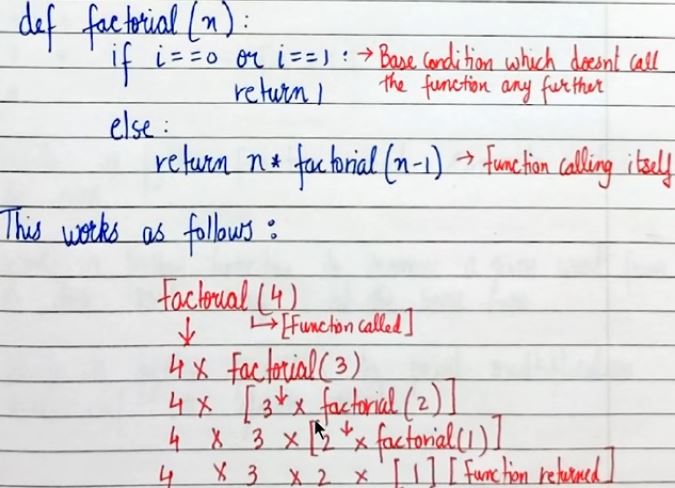 def factorial (n) :
if i==0 or i==1 : → Base condition which doesnt call
the function any further
return 1
else :
return n * factorial (n-1) → function calling itself
This works as follows :
factorial (4)
↓ ↳ [function called]
4 × factorial (3)
4 × [3 ↓ × factorial (2)]
4 × 3 × [2 ↓ × factorial (1)]
4 × 3 × 2 × [1] [function returned]